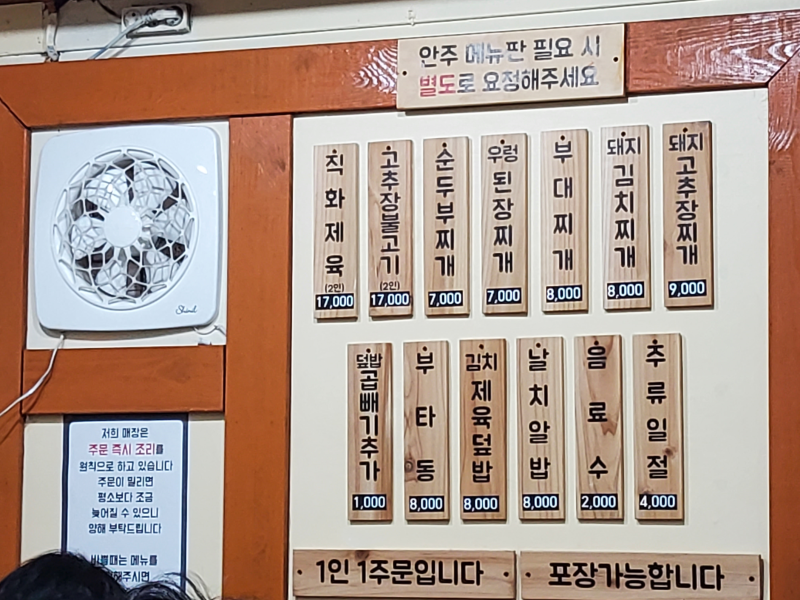 안주 메뉴판 필요 시
별도로 요청해주세요
직화제육
(2인)
17,000
고추장불고기
(2인)
17,000
순두부찌개
7,000
우렁
된장찌개
7,000
부대찌개
8,000
돼지
김치찌개
8,000
돼지
고추장찌개
9,000
덮밥
곱빼기추가
1,000
부타동
8,000
김치
제육덮밥
8,000
날치알밥
8,000
음료수
2,000
추류일절
4,000
저희 매장은
주문 즉시 조리를
원칙으로 하고 있습니다
주문이 밀리면
평소보다 조금
늦어질 수 있으니
양해 부탁드립니다
바쁠때는 메뉴를
1인 1주문입니다
포장가능합니다